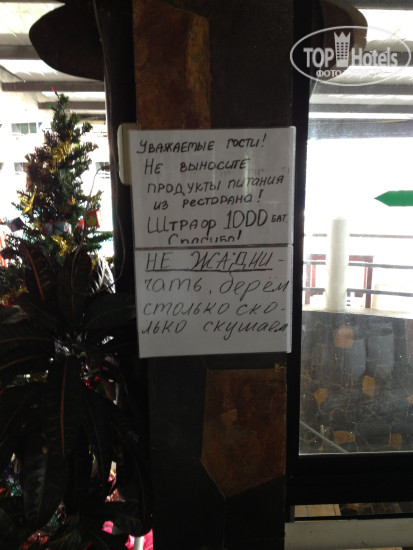 TOPHotels
ФОТО
Уважаемые гости!
Не выносите
продукты питания
из ресторана!
Штраф 1000 бат
Спасибо!
НЕ ЖАДНИ-
чать, берем
столько ско-
лько скушаем